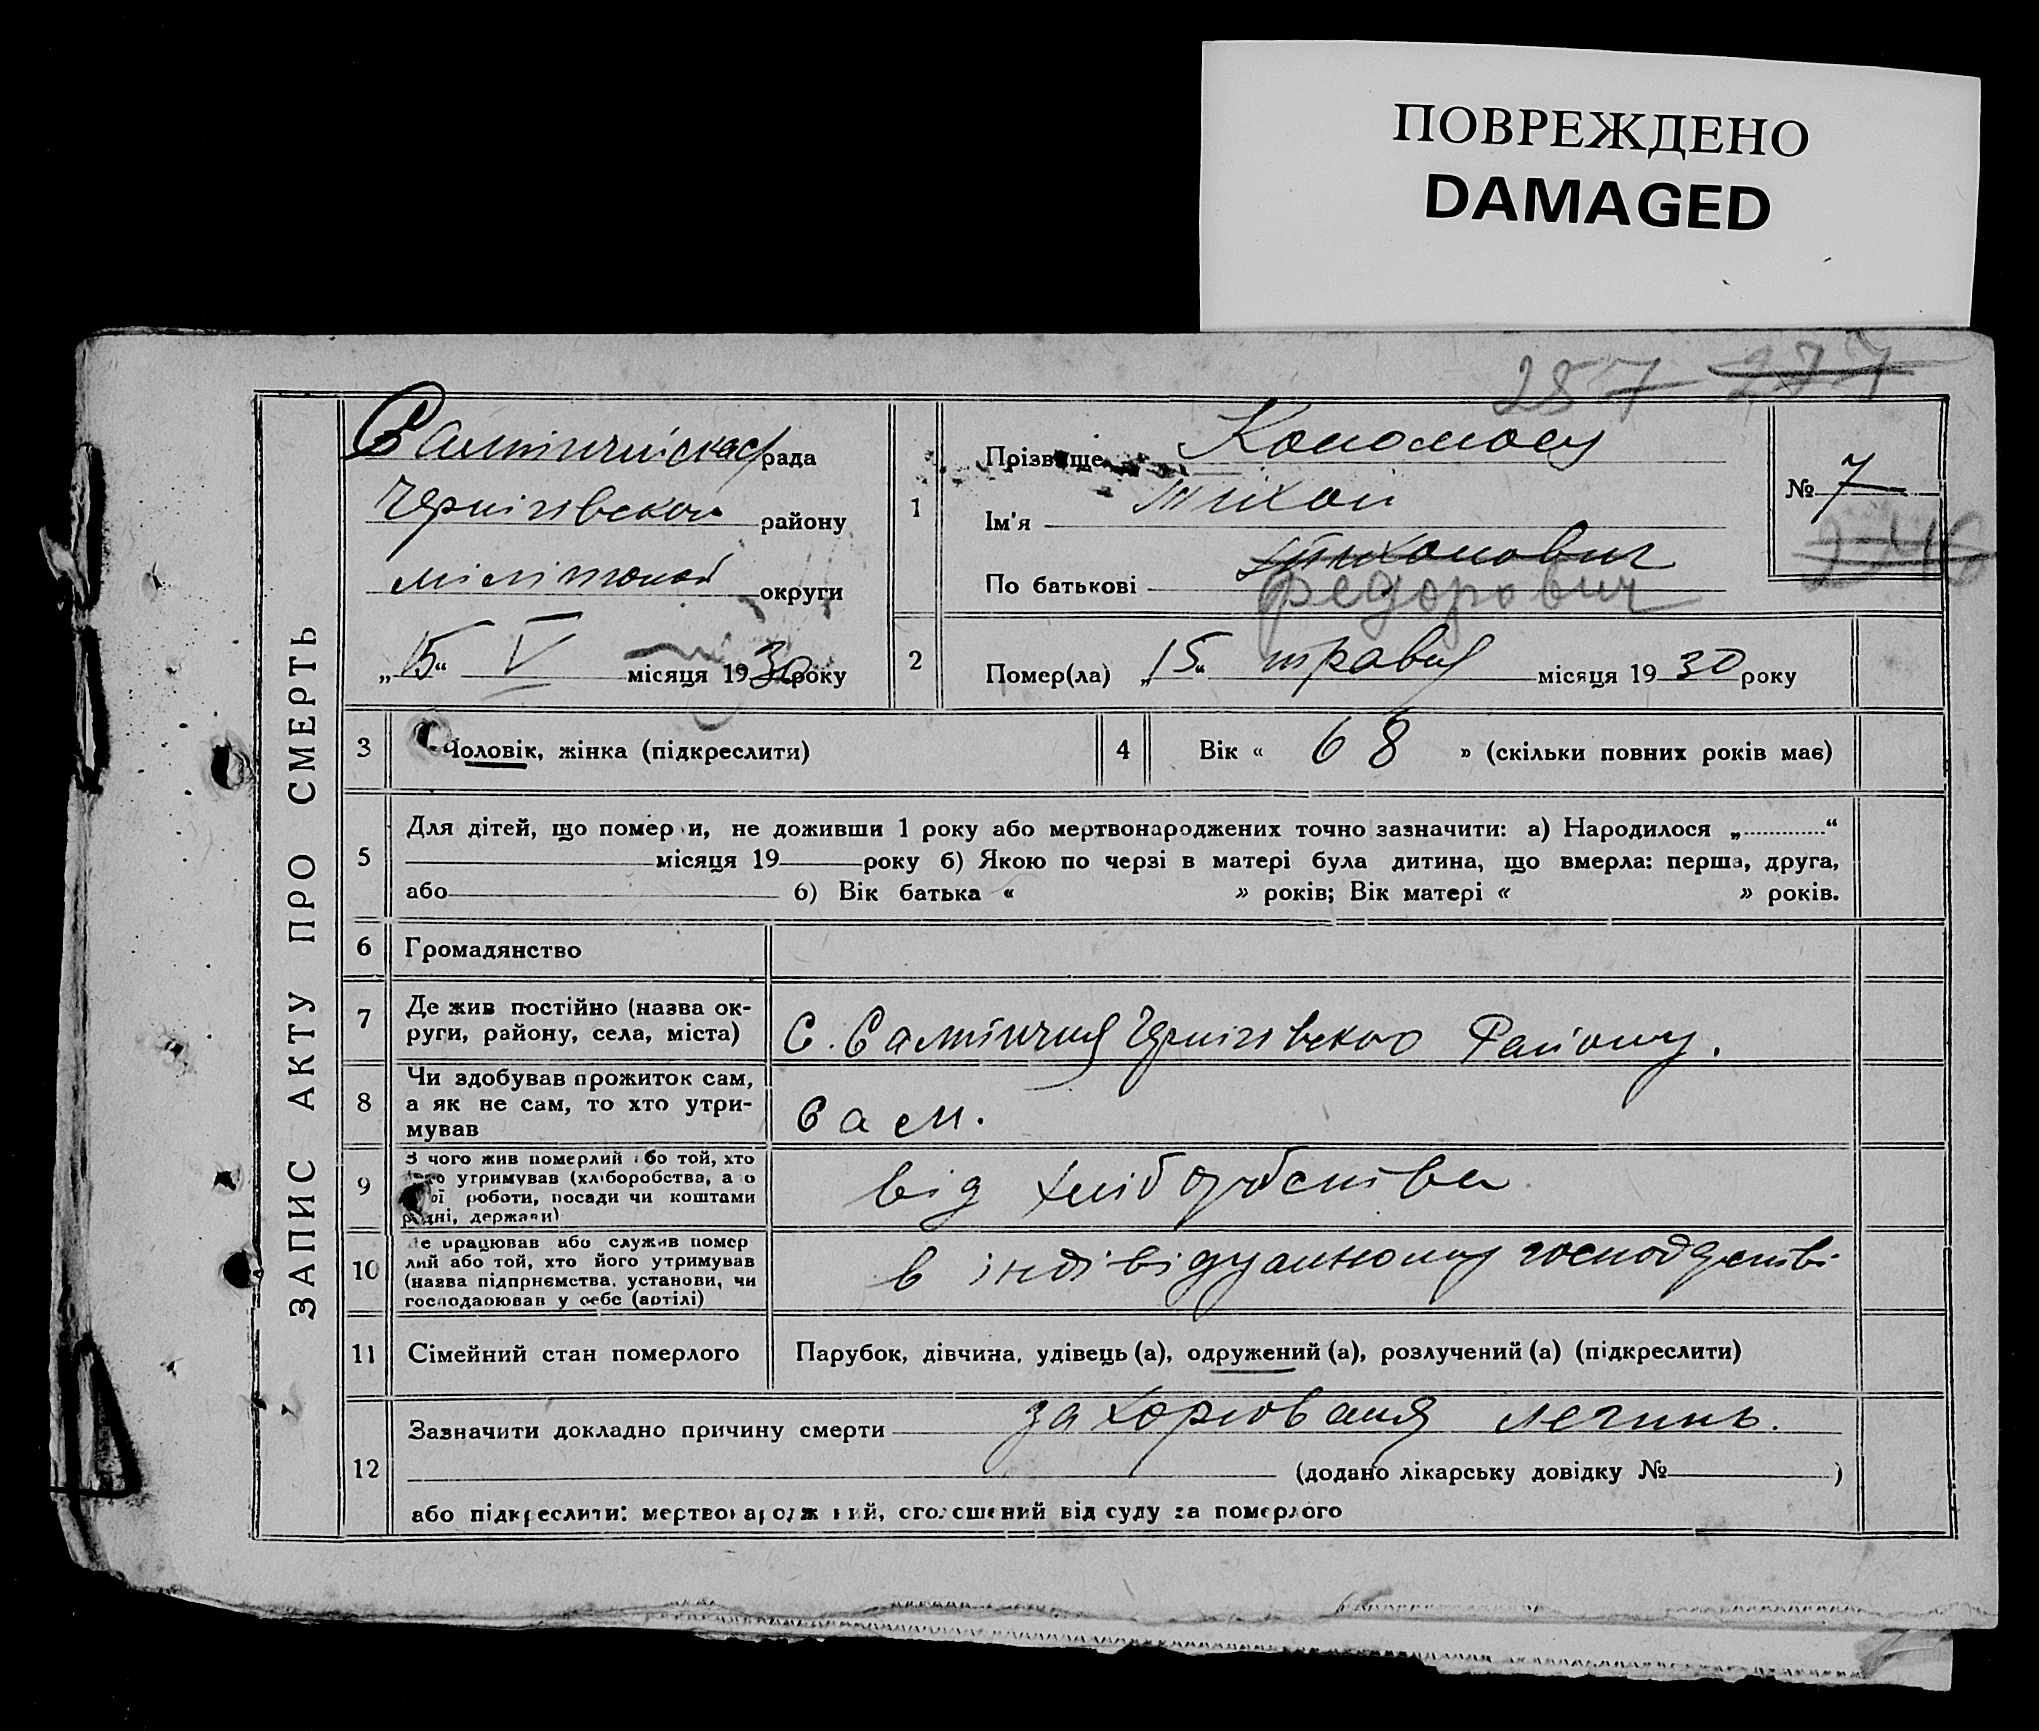 ПОВРЕЖДЕНО
DAMAGED
287 277
ЗАПИС АКТУ ПРО СМЕРТЬ
рада
Чернігівского району
округи
„15“ V місяця 1930 року
1
Прізвище
Ім'я Тихон
По батькові Тихонович
Федорович
№ 7
246
2
Помер(ла) „15“ травня місяця 1930 року
3 Чоловік, жінка (підкреслити)
4 Вік « 68 » (скільки повних років має)
5
Для дітей, що померли, не доживши 1 року або мертвонароджених точно зазначити: а) Народилося „ “
місяця 19 року б) Якою по черзі в матері була дитина, що вмерла: перша, друга,
або б) Вік батька « » років; Вік матері « » років.
6 Громадянство
7 Де жив постійно (назва ок-
руги, району, села, міста)
С. Салтичия Чернігівского Району.
8 Чи здобував прожиток сам,
а як не сам, то хто утри-
мував
Сам.
9 З чого жив померлий або той, хто
його утримував (хліборобства, або
роботи, посади чи коштами
рідні, держави)
від хліборобства
10 Де працював або служив помер
лий або той, хто його утримував
(назва підприємства, установи, чи
господарював у себе (артілі)
в індівідуальному господарстві
11 Сімейний стан померлого
Парубок, дівчина, удівець (а), одружений (а), розлучений (а) (підкреслити)
12
Зазначити докладно причину смерти захорювання легинь.
(додано лікарську довідку № )
або підкреслити: мертвонароджений, оголошений від суду за померлого